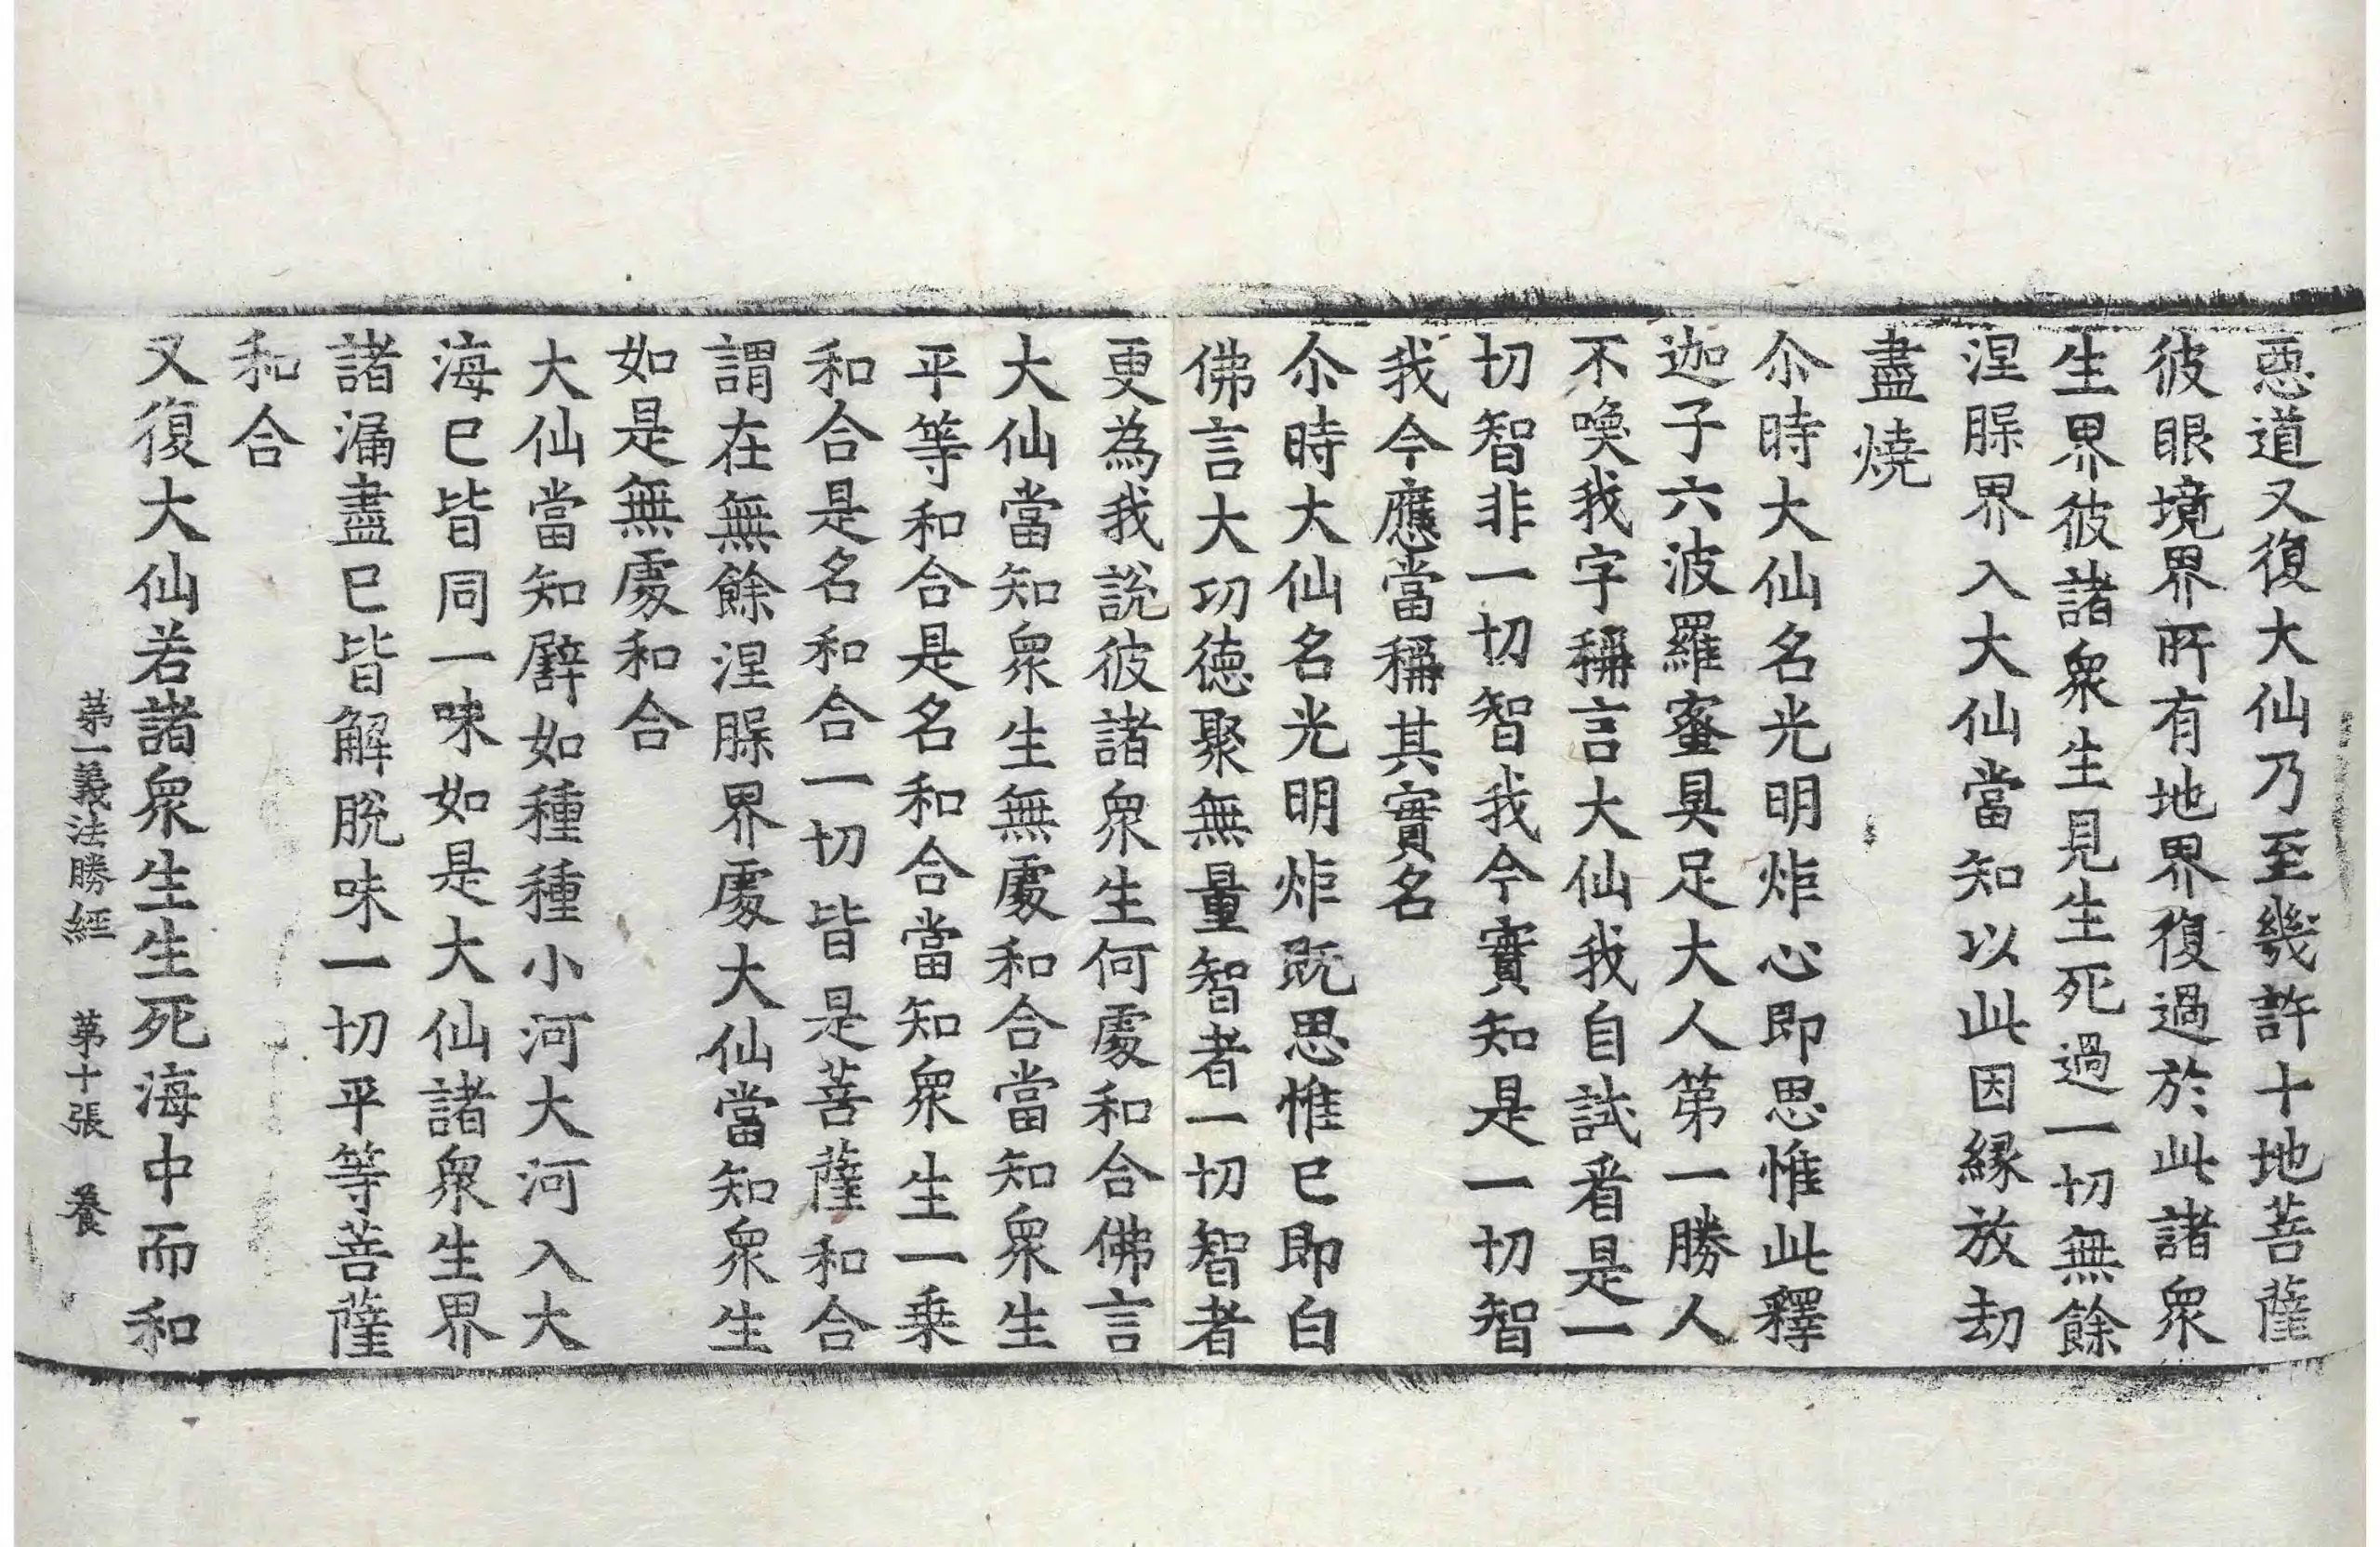 惡道又復大仙乃至幾許十地菩薩
彼眼境界所有地界復過於此諸衆
生界彼諸衆生見生死過一切無餘
涅脲界入大仙當知以此因縁放劫
盡燒
尒時大仙名光明炬心即思惟此釋
迦子六波羅蜜具足大人第一勝人
不喚我字稱言大仙我自試看是一
切智非一切智我今實知是一切智
我今應當稱其實名
尒時大仙名光明炬既思惟已即白
佛言大功德聚無量智者一切智者
更為我說彼諸衆生何處和合佛言
大仙當知衆生無處和合當知衆生
平等和合是名和合當知衆生一乗
和合是名和合一切皆是菩薩和合
謂在無餘涅脲界處大仙當知衆生
如是無處和合
大仙當知譬如種種小河大河入大
海已皆同一味如是大仙諸衆生界
諸漏盡已皆解脫味一切平等菩薩
和合
又復大仙若諸衆生生死海中而和
第一義法勝經 第十張 養